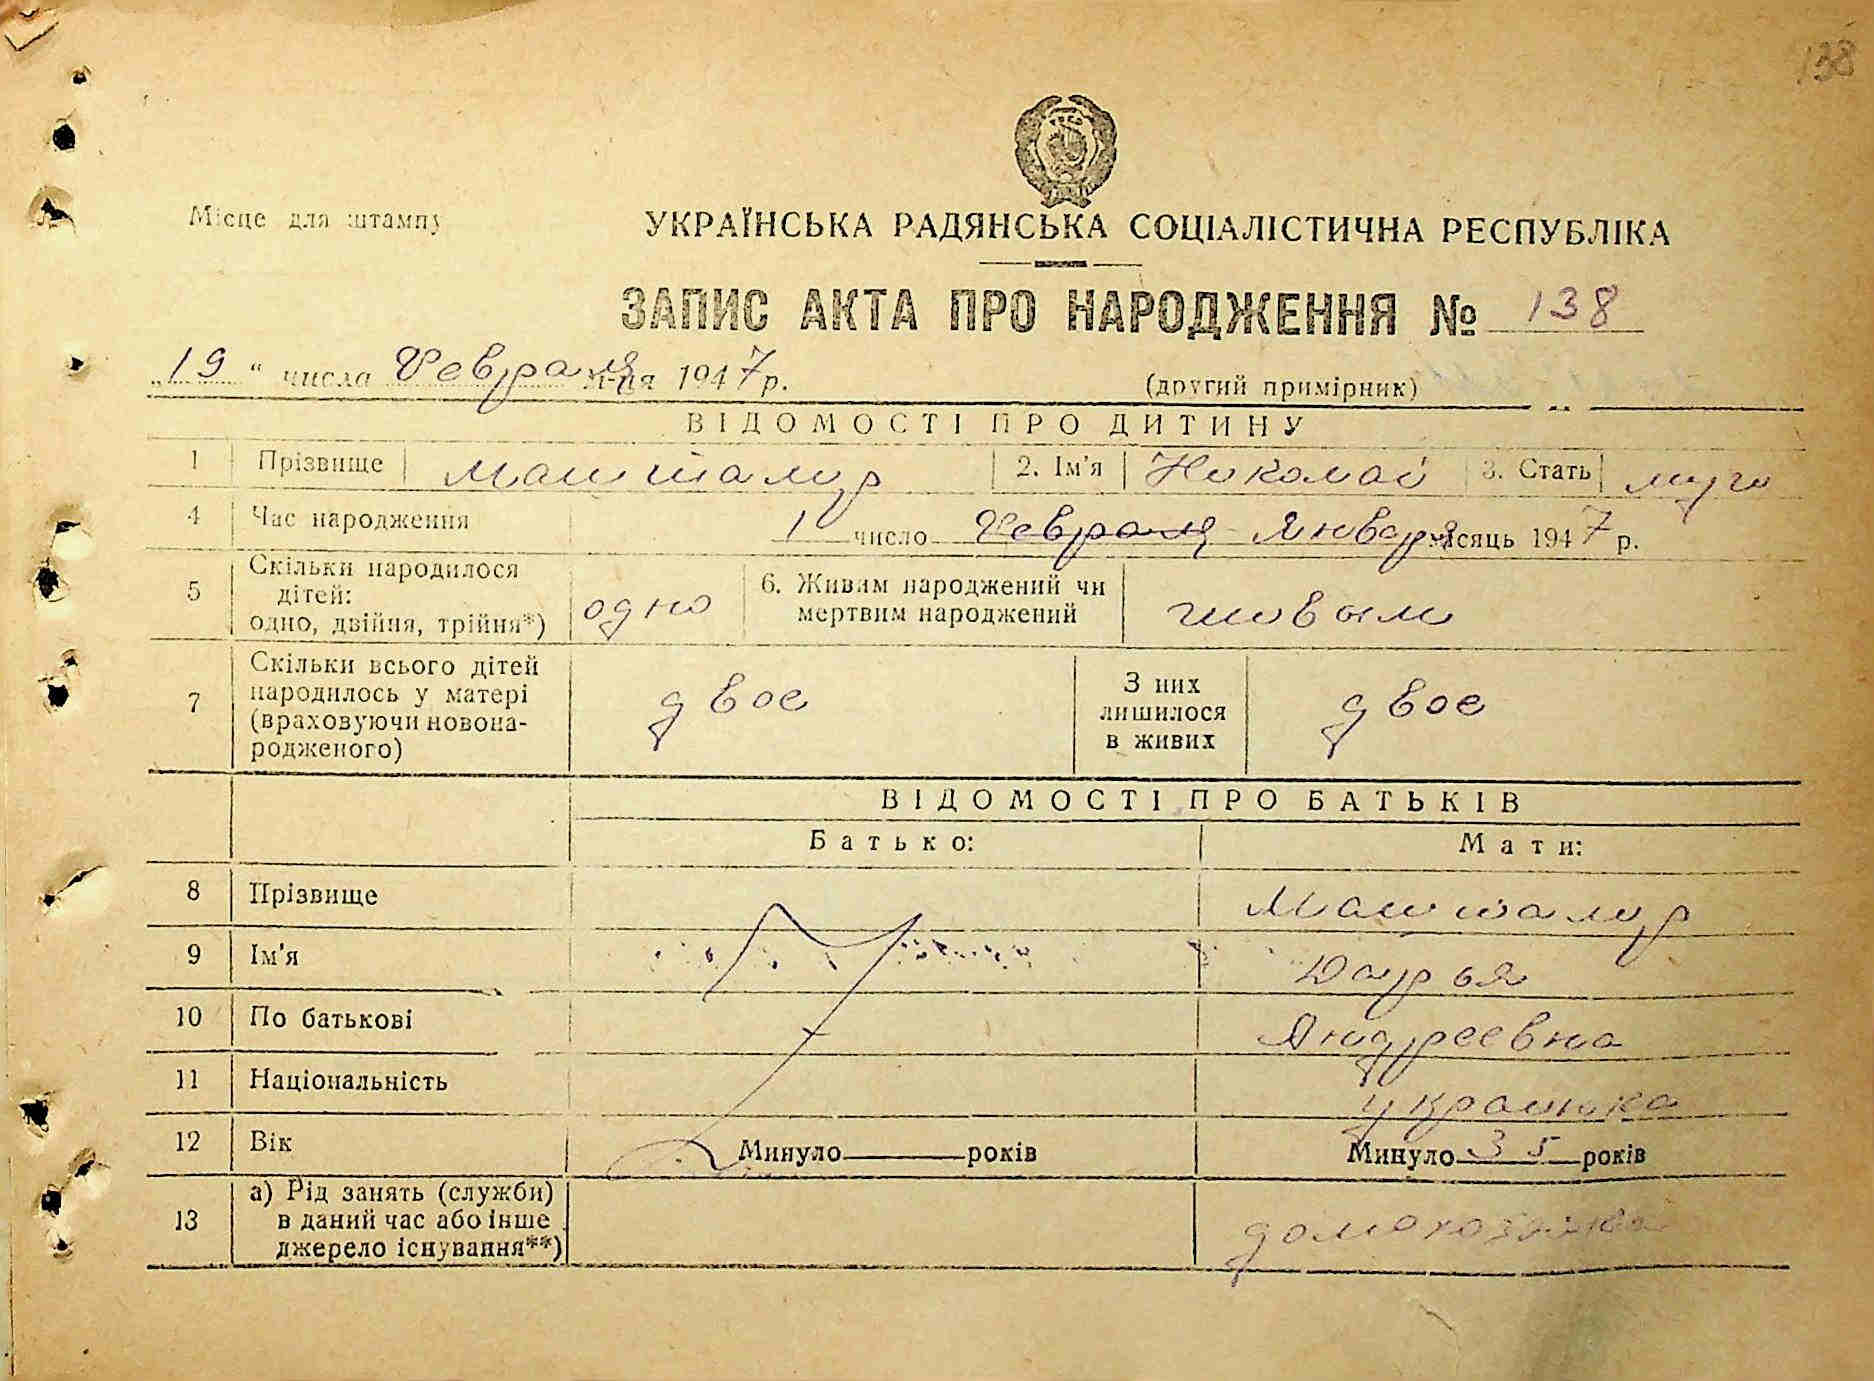 138
Місце для штампу
УКРАЇНСЬКА РАДЯНСЬКА СОЦІАЛІСТИЧНА РЕСПУБЛІКА
ЗАПИС АКТА ПРО НАРОДЖЕННЯ № 138
„19“ числа Февраля м-ця 1947 р.
(другий примірник)
ВІДОМОСТІ ПРО ДИТИНУ
1 Прізвище Машталир 2. Ім'я Николай 3. Стать муж
4 Час народження 1 число Февраля Января місяць 1947 р.
5 Скільки народилося
дітей:
одно, двійня, трійня*) одно
6. Живим народжений чи
мертвим народжений живым
7 Скільки всього дітей
народилось у матері
(враховуючи новона-
родженого)
двое
З них
лишилося
в живих
двое
ВІДОМОСТІ ПРО БАТЬКІВ
Батько: Мати:
8 Прізвище Машталир
9 Ім'я Дарья
10 По батькові Андреевна
11 Національність украинка
12 Вік Минуло років Минуло 35 років
13 а) Рід занять (служби)
в даний час або інше
джерело існування**)
домохозяйка